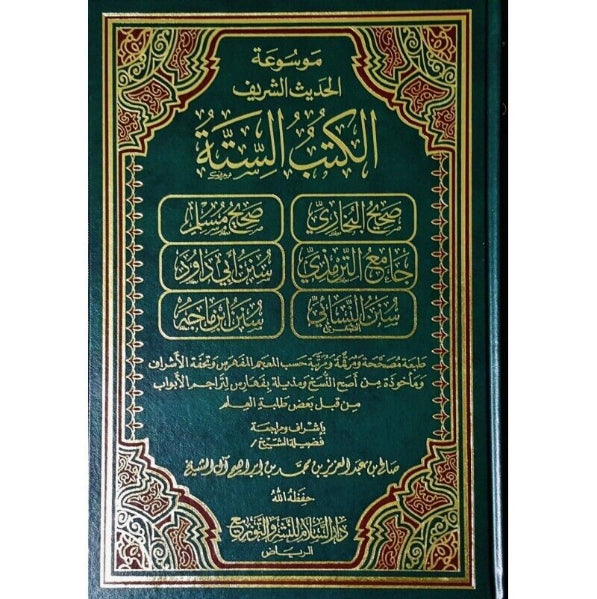 موسوعة
الحديث الشريف
الكتبُ السِّتَّةُ
صحيح البخاري صحيح مسلم
جامع الترمذي سنن أبي داود
سنن النسائي الصغرى سنن ابن ماجه
طبعة مصححة ومرقمة ومرتبة حسب المعجم المفهرس وتحفة الأشراف
ومأخوذة من أصح النسخ ومذيلة بفهارس لتراجم الأبواب
من قبل بعض طلبة العلم
بإشراف ومراجعة
فضيلة الشيخ /
صالح بن عبد العزيز بن محمد بن إبراهيم آل الشيخ
حفظه الله
دار السلام للنشر والتوزيع
الرياض